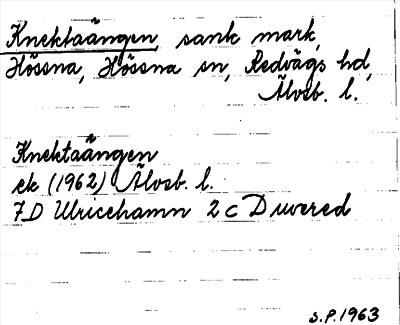 Knektaängen, sank mark,
Hössna, Hössna sn, Redvägs hd,
Älvsb. l.
Knektaängen
ek (1962) Älvsb. l.
7D Ulricehamn 2c Duvered
S.P. 1963